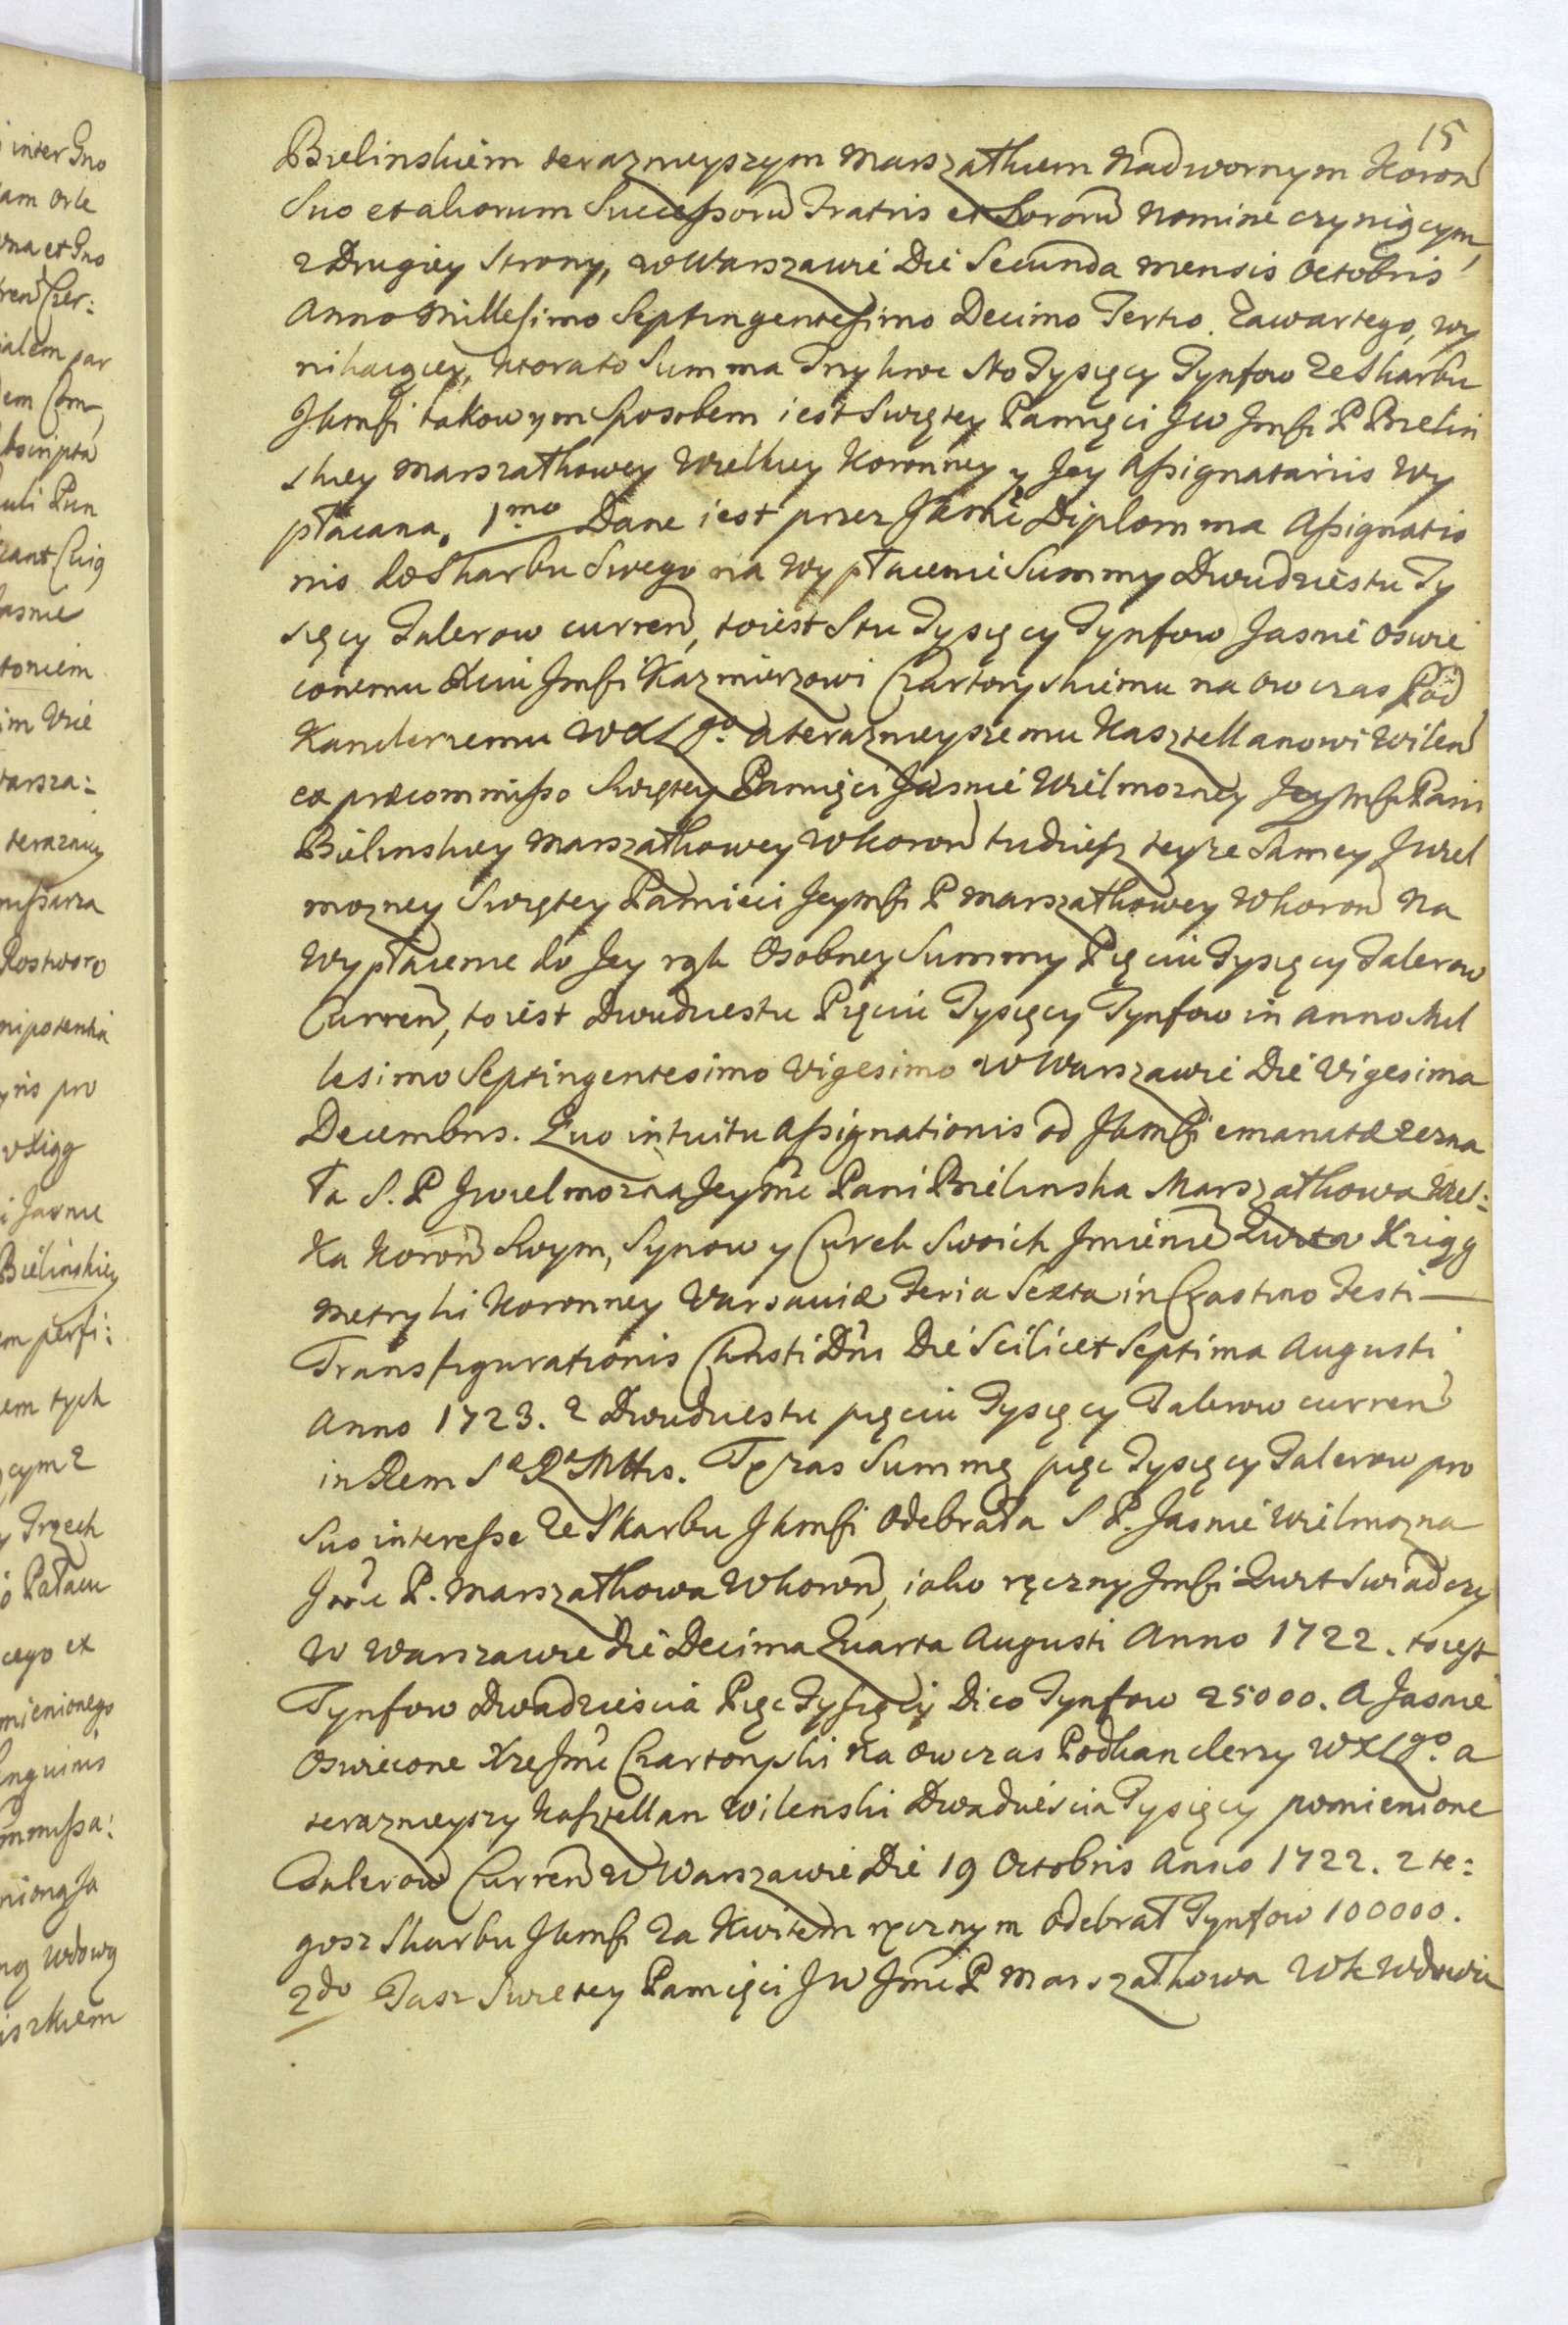 15
Bielinskiem teraznieyszym Marszałkiem Nadwornym Koron
Suo et aliorum Successorũ Fratris et Sororũ Nomine czyniącym,
z Drugiey Strony, w Warszawie Die Secunda Mensis Octobris
Anno Millesimo Septingentesimo Decimo Tertio Zawartego, wy
nikaiącey, ktora to Summa Trzykroc Sto Tysięcy Tynfow Ze Skarbu
JKmsci takowym sposobem iest Swiętey Pamięci JW Jmsci P Bielin
skiey Marszałkowey Wielkiey Koronney y Jey Assignatariis Wy
płacana. 1mo Dane iest przez JKmć Diplomma Assignatio
nis do Skarbu Swego na Wypłacenie Summy Dwudziestu Ty
sięcy Talerow curren, to iest Stu Tysięcy Tynfow Jasnie Oswie
conemu Xciu Jmsci Kazmierzowi Czartoryskiemu na ow czas Pod
Kanclerzemu WXLgo. a teraznieyszemu Kasztellanowi Wilen
ex præcommisso Swiętey Pamięci Jasnie Wielmozney Jeymsci Pani
Bielinskiey Marszałkowey WKoron tudziesz teyze Samey JWiel
mozney Swiętey Pamieci Jeymsci P Marszałkowey WKoron Na
Wypłacenie do Jey rąk Osobney Summy Pięciu Tysięcy Talerow
Curren, to iest Dwudziestu Pięciu Tysięcy Tynfow in anno Mil
lesimo Septingentesimo Vigesimo w Warszawie Die Vigesima
Decembris. Quo intuitu Assignationis od JKmsci emanatæ zezna
ła S. P JWielmozna Jeymć Pani Bielinska Marszałkowa Wiel:
Ka Koron Swym, Synow y Curek Swoich Jmieniē Kwit w Xięgg
Metryki Koronney Varsaviæ Feria Sexta in Crastino Festi
Transfigurationis Christi Dñi Die Scilicet Septima Augusti
Anno 1723. z Dwudziestu pięciu Tysięcy Talerow curren
in Rem Sæ Ræ Mttis. Tę zas Summę pięc Tysięcy Talerow pro
Suo interesse Ze Skarbu JKmsci Odebrała S P. Jasnie Wielmozna
Jmć P. Marszałkowa WKoron, iako ręczny Jmsci Kwit Swiadczy
w Warszawie Die Decima Quarta Augusti Anno 1722. to iest
Tynfow Dwadziescia Pięc Tysięcy Dico Tynfow 25000. A Jasnie
Oswiecone Xze Jmć Czartoryski na ow czas Podkanclerzy WXLgo. a
teraznieyszy Kasztellan Wilenski Dwadziescia Tysięcy pomienione
Talerow Curren w Warszawie Die 19 Octobris Anno 1722. z te:
gosz Skarbu JKmsci Za Kwitem ręcznym Odebrał Tynfow 100000.
2do Tasz Swietey Pamięci JW Jmć P Marszałkowa WK Wdowie